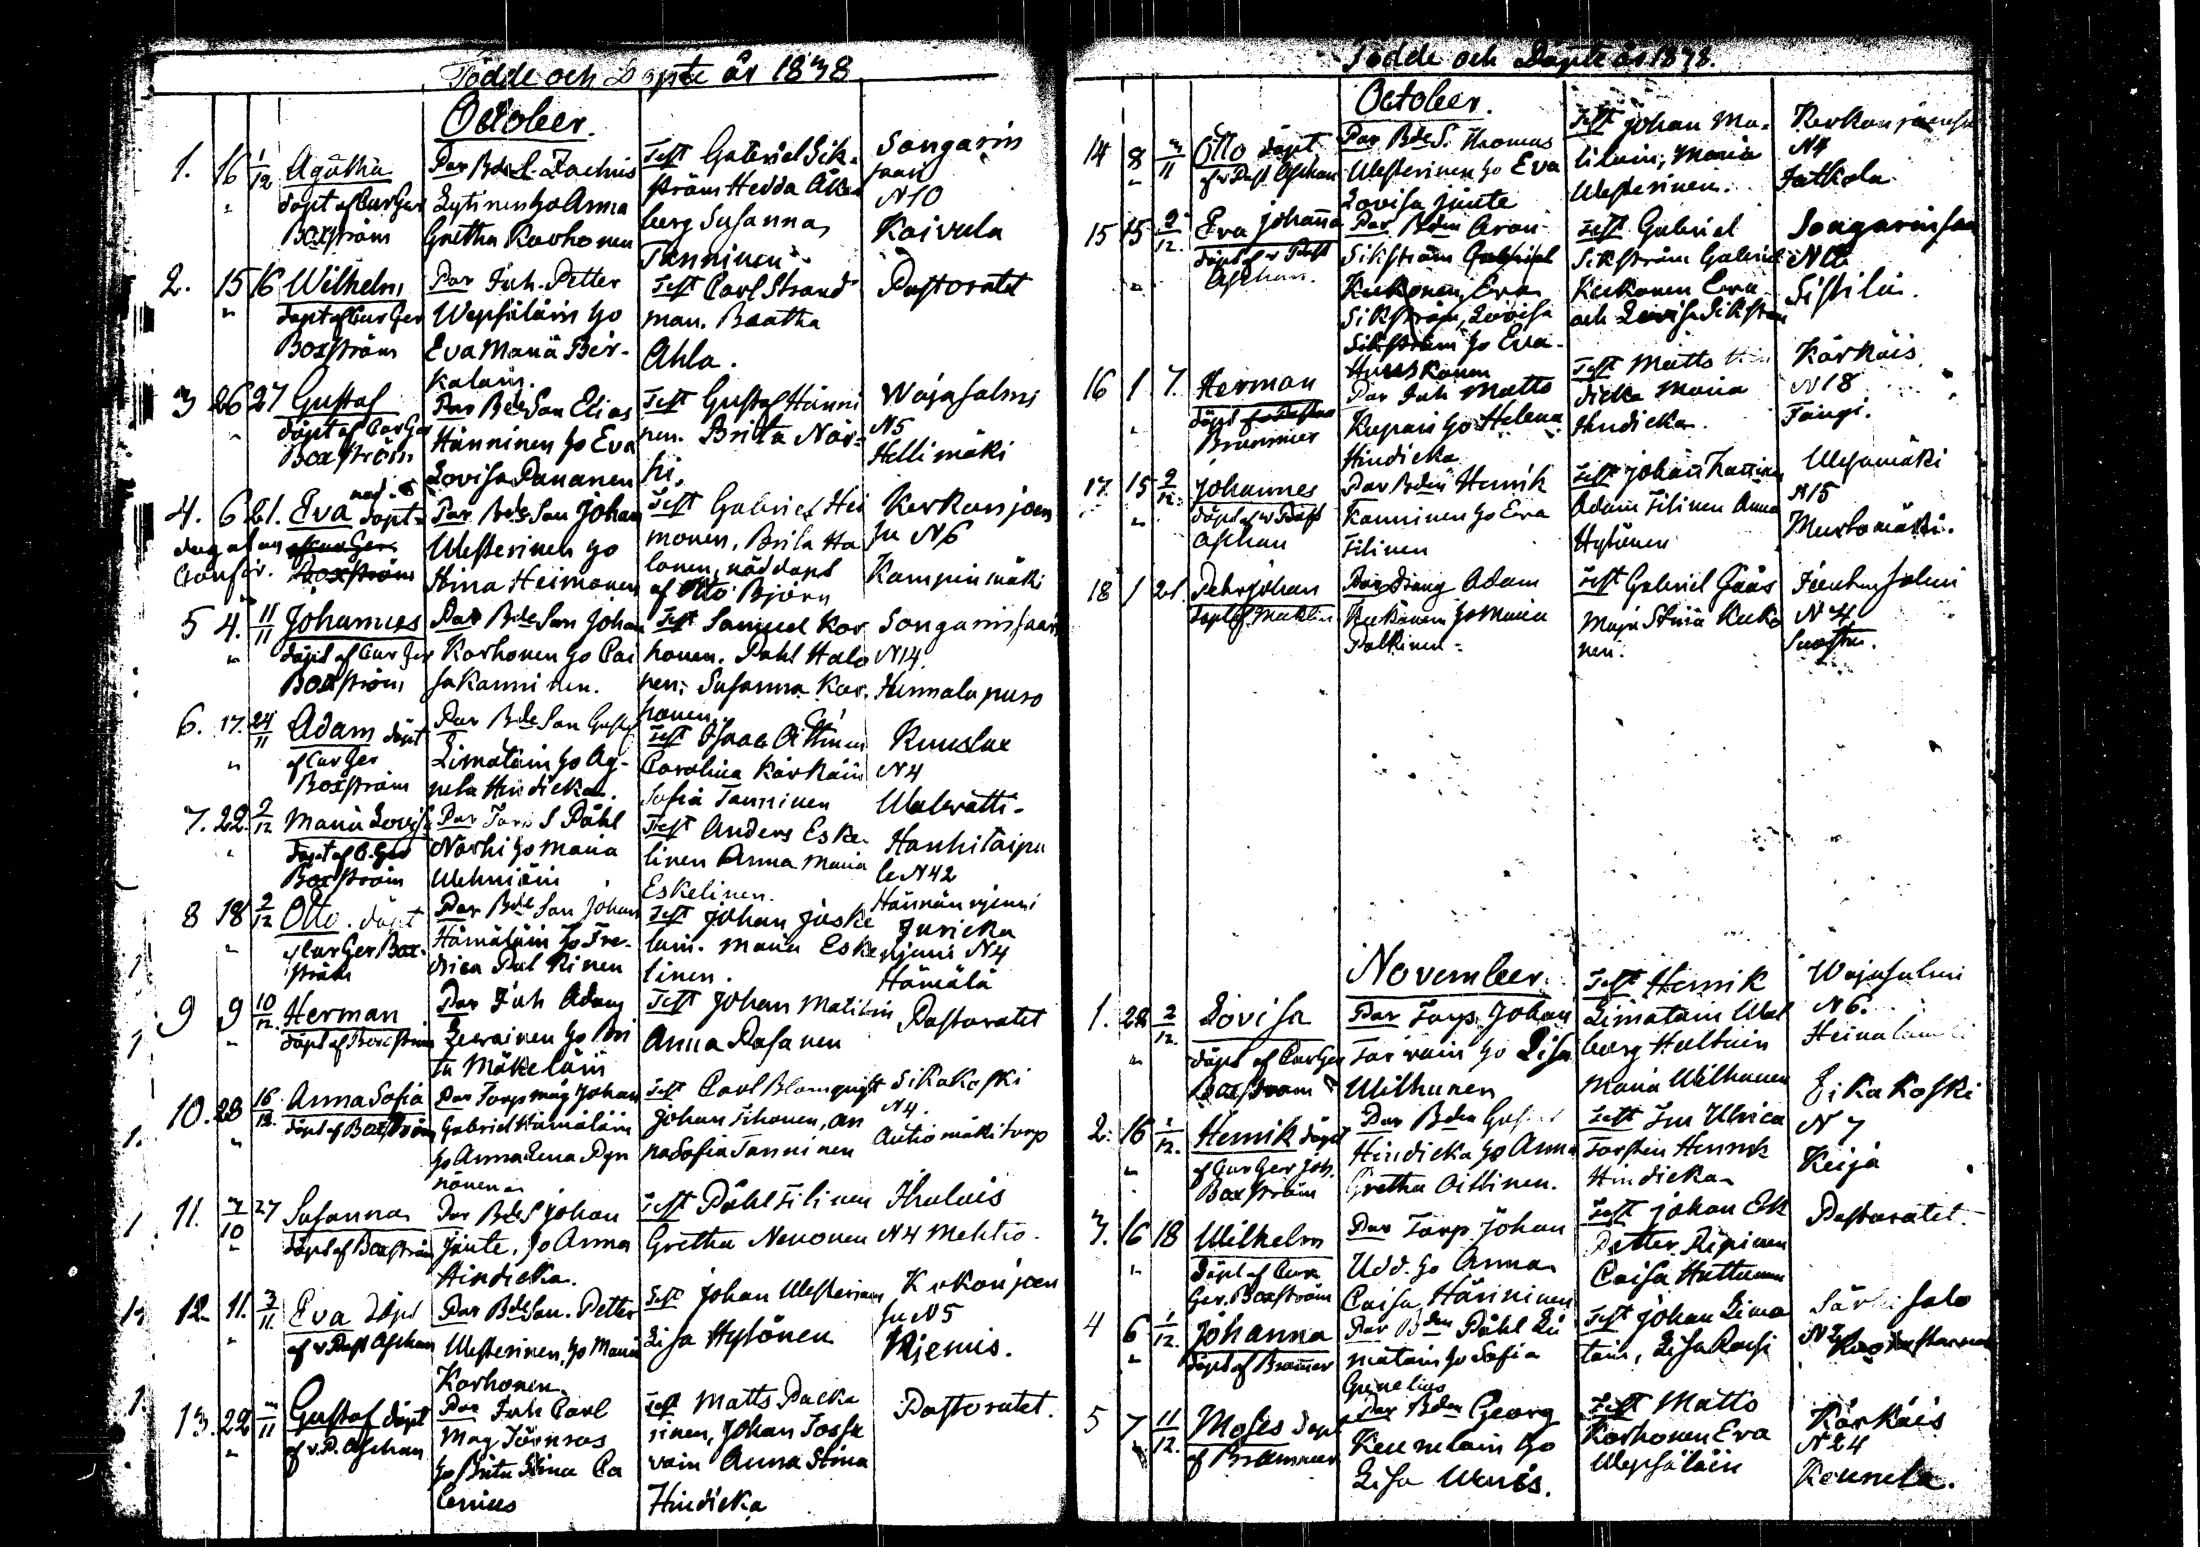 Födde och Döpte år 1838
October.
1. 16 1/12 Agatha
döpt af Cur Ger
Boxström
Par Bde S. Zachris
Lytinen Ho Anna
Gretha Korhonen
Test Gabriel Sik-
ström Hedda Åker
berg Susanna
Tanninen
Songarin
saari
N10
Koivula
2. 15 16 Wilhelm
döpt af Cur Ger
Boxström
Par Inh. Petter
Wepsäläin Ho
Eva Maria Pir-
kalain.
Test Carl Strand
man. Beatha
Ahla.
Pastoratet
3 26 27 Gustaf
döpt af Cur Ger
Boxström
Par Bde Son Elias
Hänninen Ho Eva
Lovisa Pananen
Test Gustaf Hänni
nen. Britta När-
hi.
Wajasalmi
N5
Hellimäki
4. 6 21. Eva döpt
af Cur Ger
Boxström
Par Bde Son Johan
Westerinen Ho
Stina Heimonen
Test Gabriel Hei
monen, Brita Ha
lonen, nöddöpt
af Otto Björn
Kerkonjoen
su N6
Kampinmäki
5 4. 11/11 Johannes
döpt af Cur Ger
Boxström
Par Bde Son Johan
Korhonen Ho Cai
sa Kanninen.
Test Samuel Kor
honen. Påhl Halo
nen; Susanna Kor.
honen.
Songarinsaari
N14.
Hermalapuro
6. 17. 24/11 Adam döpt
af Cur Ger
Boxström
Par Bde Son Gustaf
Limatain Ho Ag-
neta Hindicka.
Test Isaac Oittinen
Carolina Kärkäin
Sofia Tanninen
Kuuslax
N4
Walwätti-
7. 22. 2/12 Maria Lovisa
döpt af C. Ger
Boxström
Par Torp S Påhl
Närhi Ho Maria
Wehniäin
Test Anders Eske
linen Anna Maria
Eskelinen.
Hanhitaipa
le N42
Hännänniemi
8 18 2/12 Otto. döpt
af Cur Ger Box-
ström
Par Bde Son Johan
Hämäläin Ho Fre-
drica Pulkinen
Test Johan Jäske
lain. Maria Eske
linen.
Juricka
niemi N4
Hämälä
9 9 10/12. Herman
döpt af Boxström
Par Inh Adam
Leewainen Ho Bri
ta Mäkeläin
Test Johan Matilain
Anna Pasanen
Pastoratet
10. 28 16/12. Anna Sofia
döpt af Boxström
Par Torpmåg Johan
Gabriel Hämäläin
Ho Anna Lena Pyn
nönen
Test Carl Blomqvist
Johan Tihonen, An
na Sofia Tanninen
Sikakoski
N4.
Autiomäki torp
11. 7/10 27 Susanna
döpt af Boxström
Par Bde S Johan
Jänte, Ho Anna
Hindicka.
Test Påhl Filinen
Gretha Nenonen
Thulais
N4 Mehtio.
12. 11. 3/11. Eva döpt
af v Past Aschan
Par Bde Son. Petter
Westerinen, Ho Maria
Korhonen
Test Johan Westerinen
Lisa Hytönen
Kerkonjoen
su N5
Niemis.
13. 22 3/11 Gustaf döpt
af v. P. Aschan
Par Inh Carl
Mag Törnroos
Ho Brita Stina Ca
lenius
Test Matts Packa
rinen, Johan Tossa
vain Anna Stina
Hindicka
Pastoratet.
Födde och Döpte år 1838.
October.
14 8 3/11 Otto döpt
af v Past Aschan
Par Bde S. Thomas
Westerinen Ho Eva
Lovisa Jänte
Test Johan Ma-
tilain; Maria
Westerinen.
Kerkonjoensu
N4
Jatkola
15 15 2/12. Eva Johanna
döpt af v Past
Aschan.
Par Bden Aron
Sikström Gabriel
Kukonen, Eva
Sikström, Lovisa
Sikström Ho Eva
Huuskonen
Test Gabriel
Sikström Gabriel
Kukonen Eva
och Lovisa Sikström
Songarinsaa
Sistilä.
16 1 7. Herman
döpt
Brummer
Par Inh Matts
Kupari Ho Helena
Hindicka
Test Matts Hin
dicka Maria
Hindicka.
Kärkäis
N18
Tangi.
17. 15 2/12. Johannes
döpt af v Past
Aschan
Par Bden Henrik
Kanninen Ho Eva
Filinen
Adam Filinen Anna
Hytönen
Wesamäki
N15
Murtomäki.
18 1 21 Pehr Johan
Par Dräng Adam
Kukonen Ho Maria
Pulkinen
Test Gabriel Gåås
Maja Stina Kuko
nen.
N4
November.
1. 22 2/12. Lovisa
döpt af Cur Ger
Boxström
Par Torp. Johan
Ho Lisa
Wilhunen
Test Henrik
Limatain Wal
borg Hultuin
Maria Wilhunen
Wajasalmi
N6.
2. 16 1/12. Henrik döpt
af Cur Ger Joh.
Boxström
Par Bden Gustaf
Hindicka Ho Anna
Gretha Oittinen.
Test Ulrica
Torsten Henrik
Hindicka
Sikakoski
N7
Keija
3. 16 18 Wilhelm
döpt af Cur
Ger. Boxström
Par Torp Johan
Udd. Ho Anna
Caisa Hänninen
Test Johan Esk
Petter Ripinen
Caisa Huttunen
Pastoratet.
4 6 1/12. Johanna
döpt af Brummer
Par Bden Påhl Li
matain Ho Sofia
Gunelius
Test Johan Lima
tain, Lisa Rasi
Särkisalo
5 7 11/12. Moses döpt
af Brummer
Par Bden Georg
Keumlain Ho
Lisa Wenis.
Test Matts
Korhonen Eva
Wepsäläin
Kärkäis
N24
Keumla.